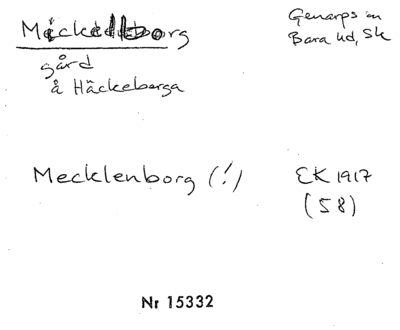 Mickelborg
Genarps sn
Bara hd, Sk
gård
å Häckeberga
Mecklenborg (!)
EK 1917
(58)
Nr 15332